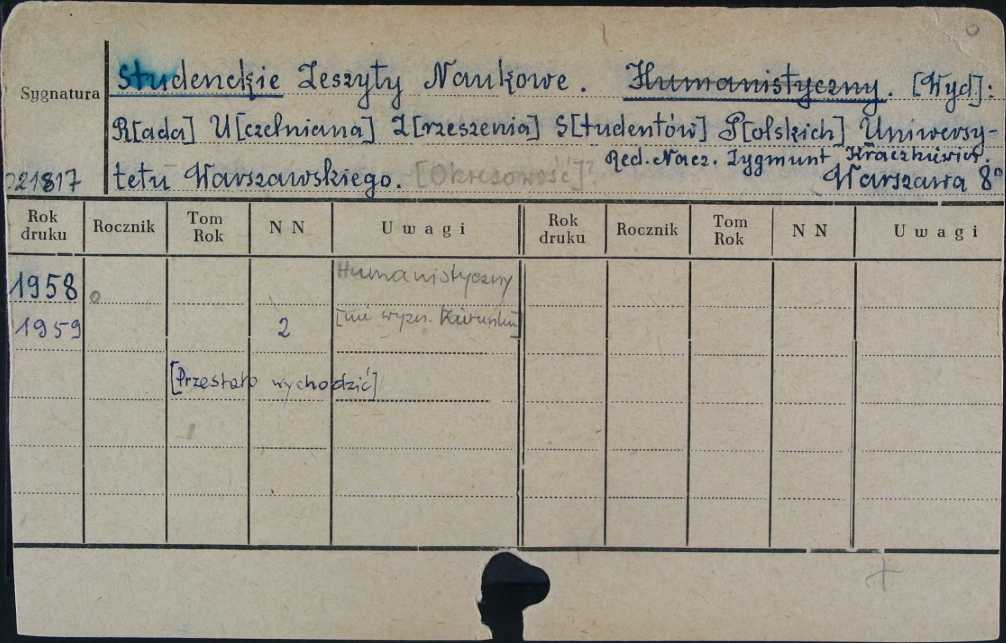 Studenckie Zeszyty Naukowe. Humanistyczny. [Wyd]:
Sygnatura
R[ada] U[czelniana] Z[rzeszenia] S[tudentów] P[olskich] Uniwersy-
Red. Nacz. Zygmunt Kraczkiewicz.
021817 tetu Warszawskiego. [Okresowość]? Warszawa 8°
Rok druku Rocznik Tom Rok N N Uwagi Rok druku Rocznik Tom Rok N N Uwagi
1958 Humanistyczny
1959 2 [nie wyszcz. kierunku]
[Przestało wychodzić]